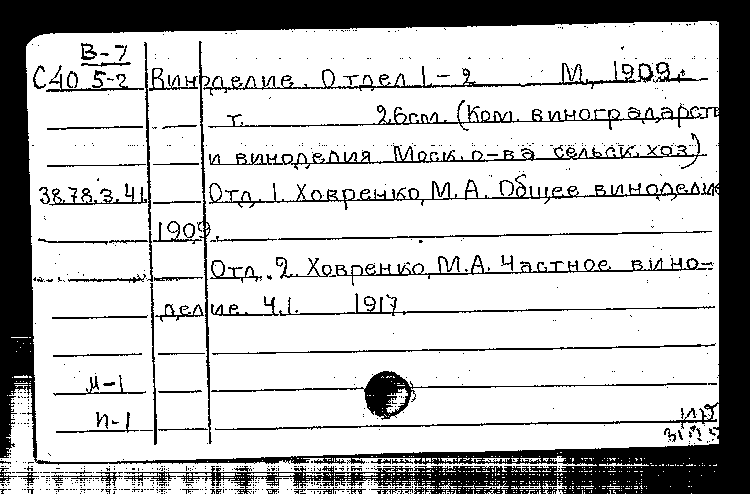 В-7
С40 5-2 Виноделие. Отдел 1-2 М., 1909.
т. 26см. (Ком. виноградарств
и виноделия Моск. о-ва сельск. хоз)
38.78.3.41 Отд. 1. Ховренко, М.А. Общее виноделие
1909.
Отд. 2. Ховренко, М.А. Частное вино-
делие. Ч.1. 1917.
М-1
П-1